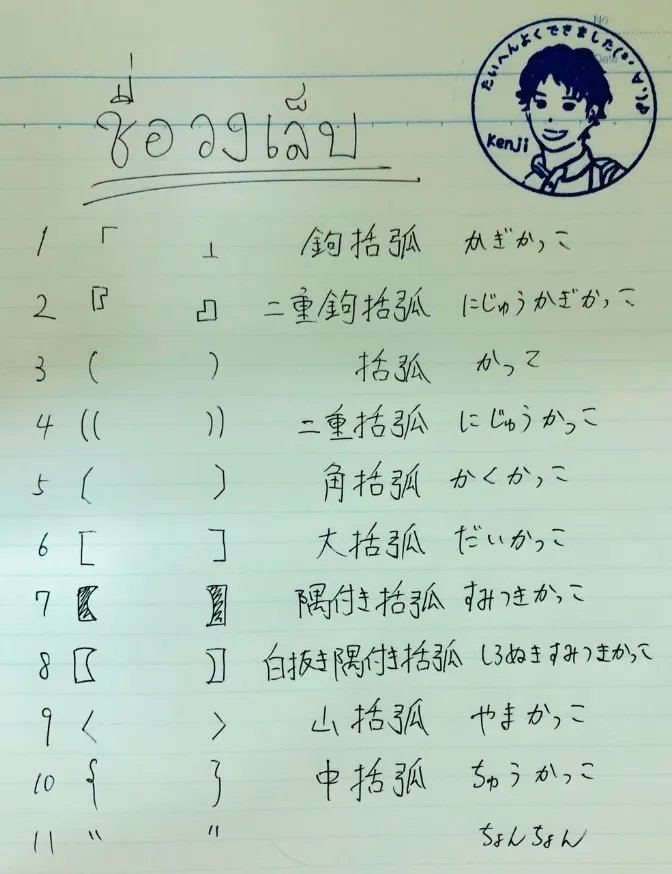 No
Date
たいへんよくできました
Kenji
ชื่อวงเล็บ
1 「 」 鉤括弧 かぎかっこ
2 『 』 二重鉤括弧 にじゅうかぎかっこ
3 ( ) 括弧 かって
4 (( )) 二重括弧 にじゅうかっこ
5 〔 〕 角括弧 かくかっこ
6 [ ] 大括弧 だいかっこ
7 【 】 隅付き括弧 すみつきかっこ
8 〖 〗 白抜き隅付き括弧 しろぬきすみつきかっこ
9 〈 〉 山括弧 やまかっこ
10 { } 中括弧 ちゅうかっこ
11 〃 〃 ちょんちょん